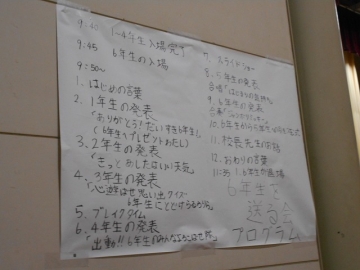 9:40 1~4年生入場完了
9:45 6年生の入場
9:50~
1.はじめの言葉
2.1年生の発表
「ありがとう!だいすき6年生」
(6年生へプレゼントわたし)
3.2年生の発表
「きっとあしたはいい天気」
4.3年生の発表
思い出クイズ
6年生にとどけ
5.ブレイクタイム
6.4年生の発表
「出動!!6年生の
7.スライドショー
8.5年生の発表
合唱「はじまりの
9.6年生の発表
合奏「
10.6年生から5年生
11.校長先生の話
12.おわりの言葉
11:35 6年生が退場
6年生を
送る会
プログラム